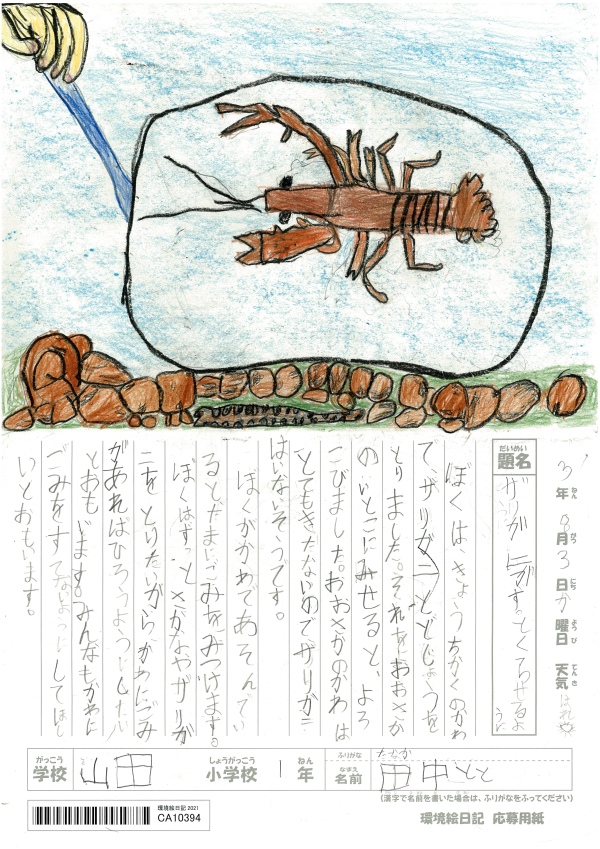 3年8月3日か曜日 天気はれ
ねん がつ にち ようび てんき
だいめい
題名
ザリガニがずっとくらせるように
ぼくは、きょうちかくのかわ
で、ザリガニとどじょうを
とりました。それをおおさか
のいとこにみせると、よろ
こびました。おおさかのかわは
とてもきたないのでザリガニ
はいないそうです。
ぼくがかわであそんでい
るとたまにごみをみつけます。
ぼくはずっとさかなやザリガ
ニをとりたいからかわにごみ
があればひろうようにしたい
とおもいます。みんなもかわに
ごみをすてないようにしてほし
いとおもいます。
がっこう しょうがっこう ねん
学校 山田 小学校 1年
ふりがな たなか
なまえ
名前 田中
(漢字で名前を書いた場合は、ふりがなをふってください)
環境絵日記 2021
CA10394
環境絵日記 応募用紙